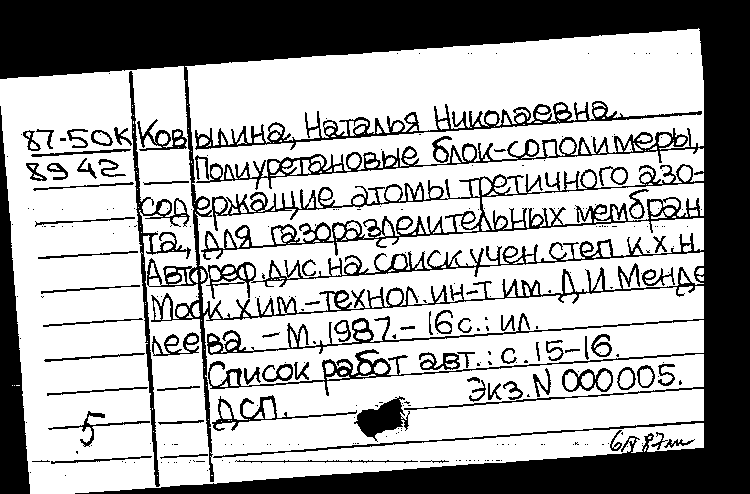 87-50К Ковылина, Наталья Николаевна.
8942 Полиуретановые блок-сополимеры,
содержащие атомы третичного азо-
та, для газоразделительных мембран
Автореф. дис. на соиск. учен. степ к.х.н.
Моск. хим.-технол. ин-т им. Д.И. Менде
леева. - М., 1987. - 16 с.: ил.
Список работ авт.: с. 15-16.
Экз. N 000005.
ДСП.
5